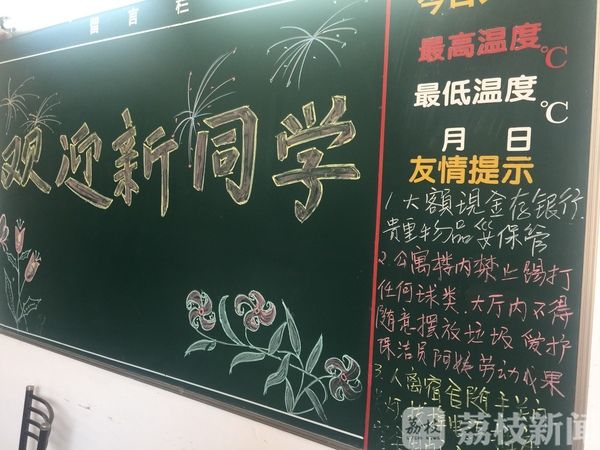 留言栏
欢迎新同学
最高温度℃
最低温度℃
月 日
友情提示
1、大額現金存银行.
貴重物品妥保管
2、公寓楼内禁止踢打
任何球类.大厅内不得
随意擺放垃圾爱护
保洁员阿姨劳动成果
3、人离宿舍随
荔枝
荔枝新闻